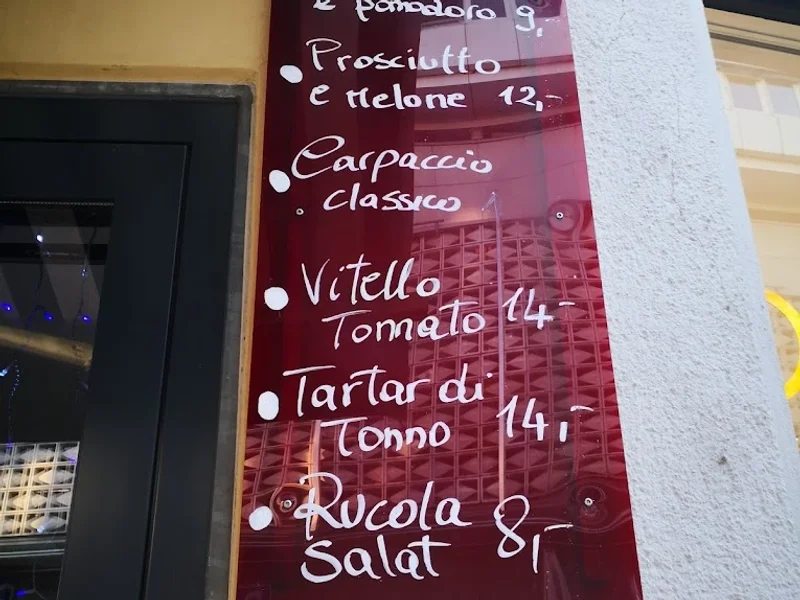 e pomodoro 9,-
Prosciutto
e Melone 12,-
Carpaccio
classico
Vitello
Tonnato 14-
Tartar di
Tonno 14,-
Rucola
Salat 8,-